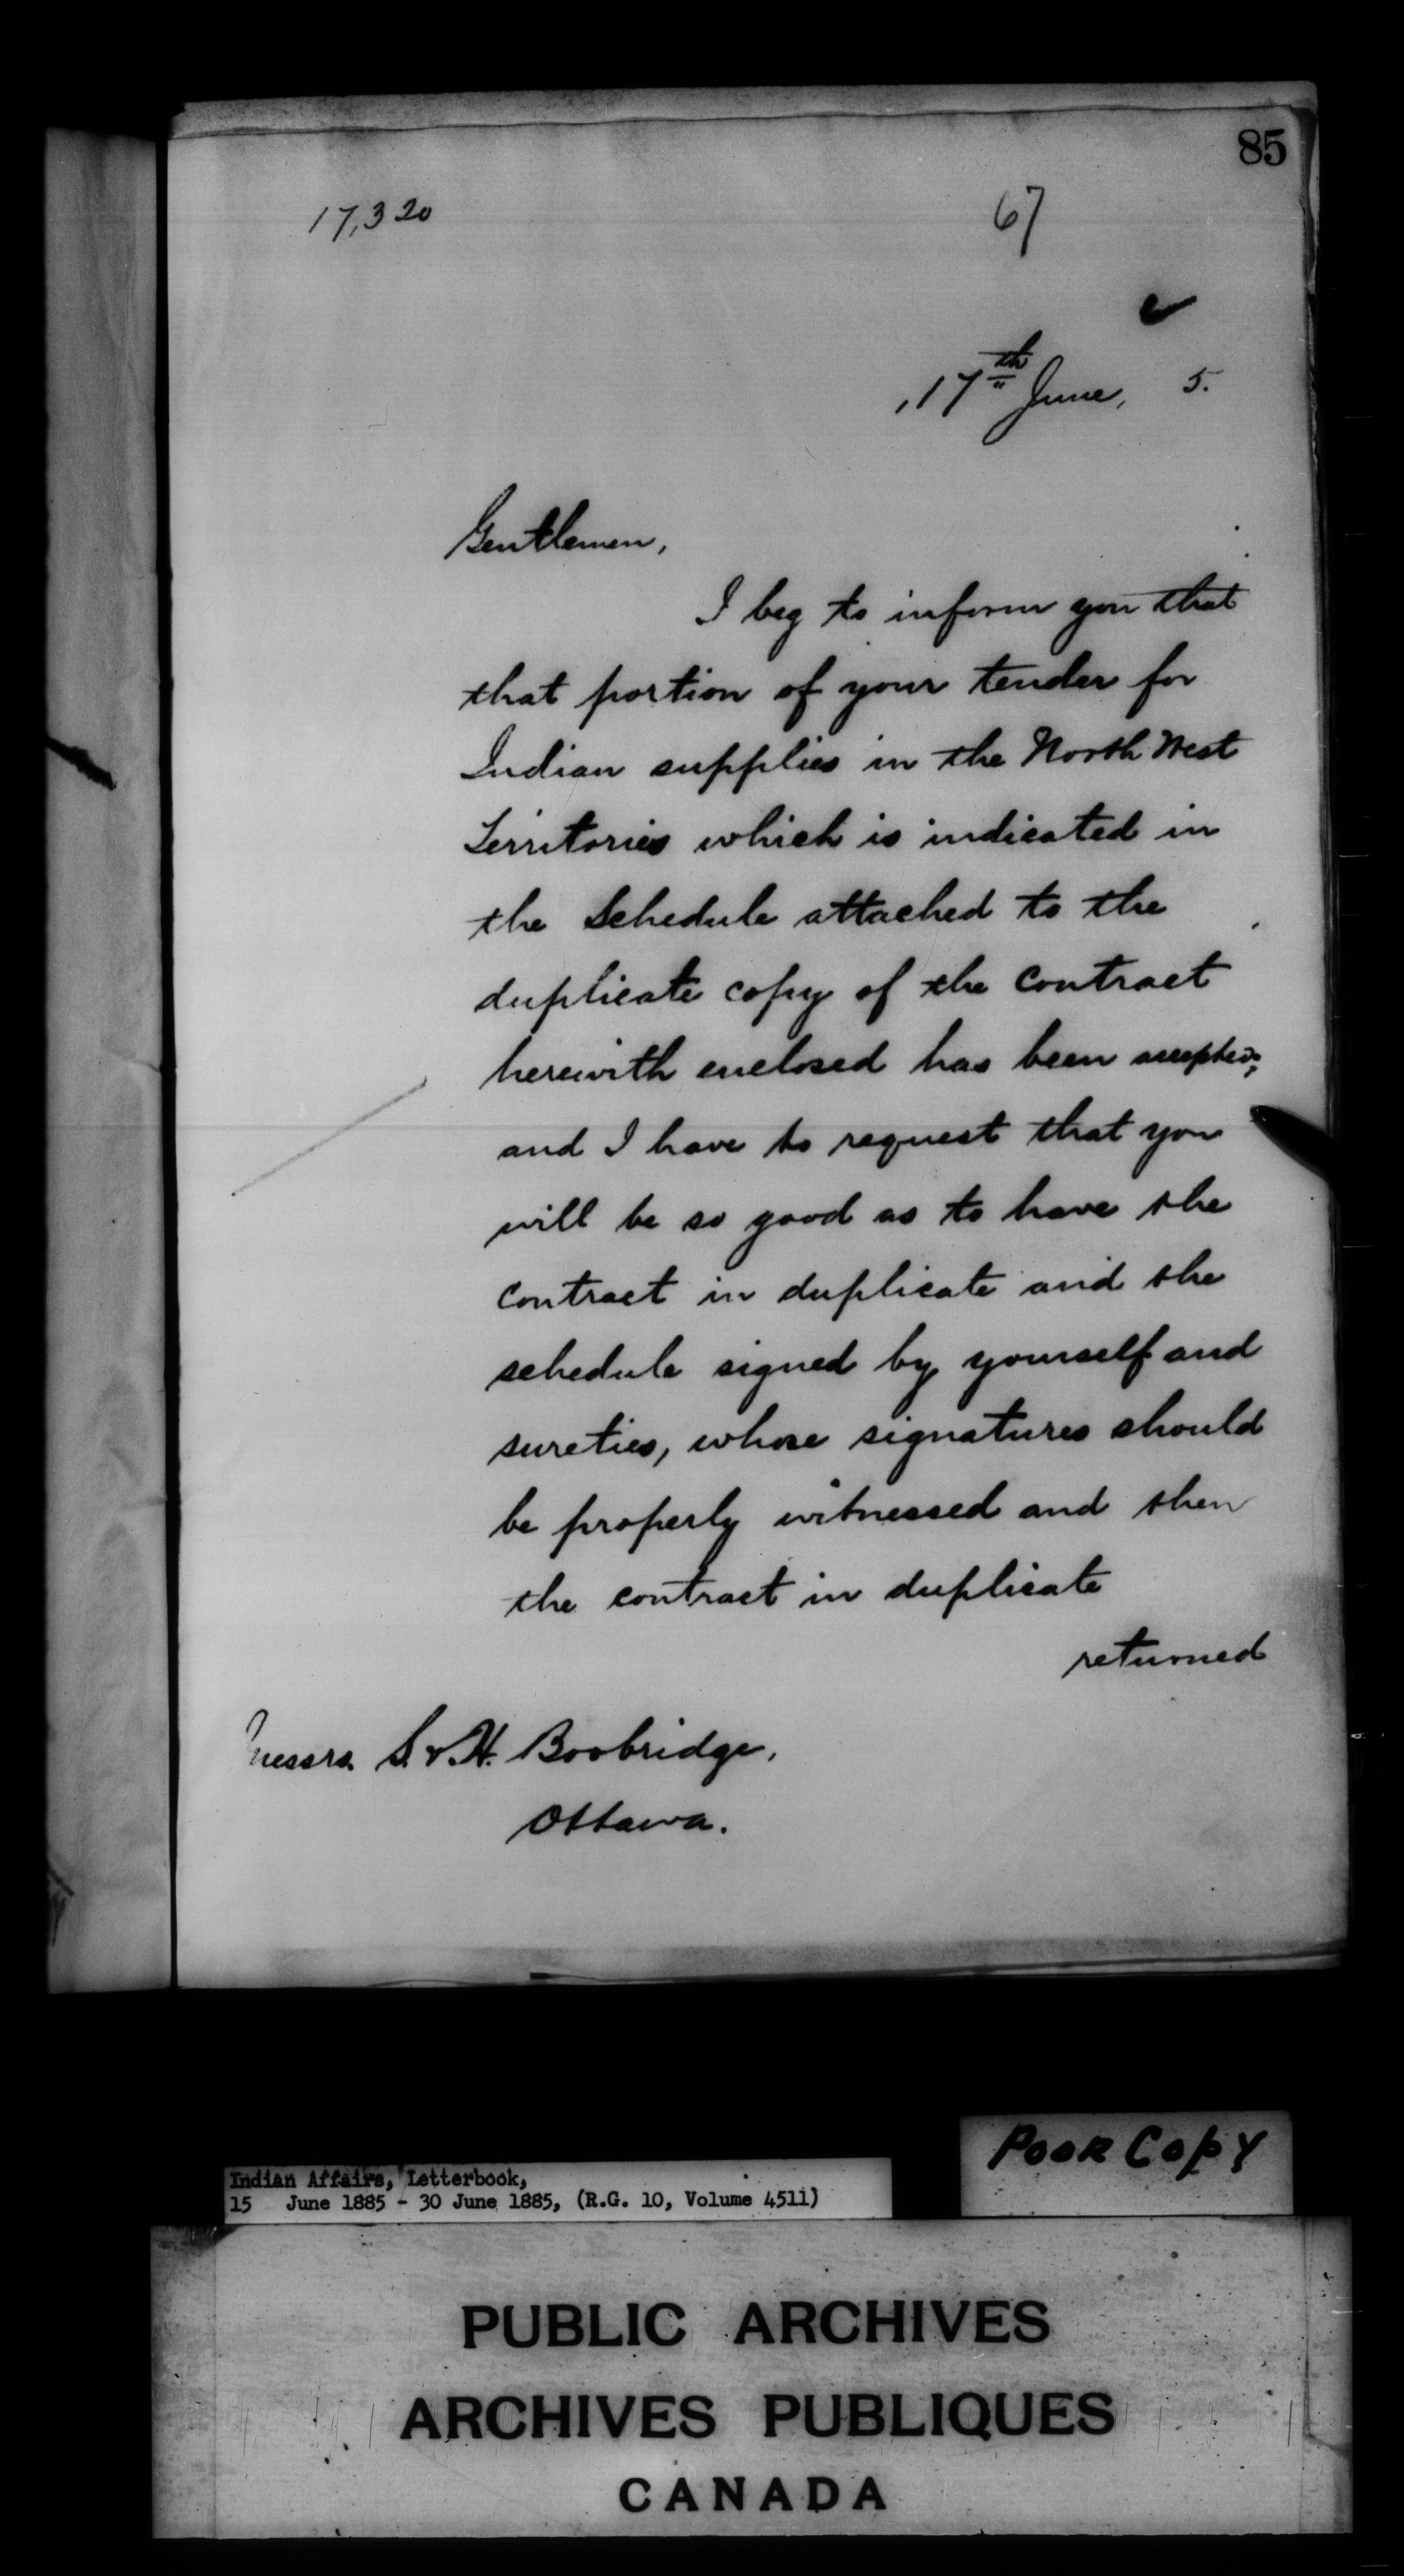 85
17,320
67
17th June, 5.
Gentlemen,
I beg to inform you that
that portion of your tender for
Indian supplies in the North West
Territories which is indicated in
the Schedule attached to the
duplicate copy of the contract
herewith enclosed has been accepted;
and I have to request that you
will be so good as to have the
contract in duplicate and the
schedule signed by yourself and
sureties, whose signatures should
be properly witnessed and then
the contract in duplicate
returned
Messrs. S. & H. Borbridge,
Ottawa.
Poor Copy
Indian Affairs, Letterbook,
15 June 1885 - 30 June 1885, (R.G. 10, Volume 4511)
PUBLIC ARCHIVES
ARCHIVES PUBLIQUES
CANADA